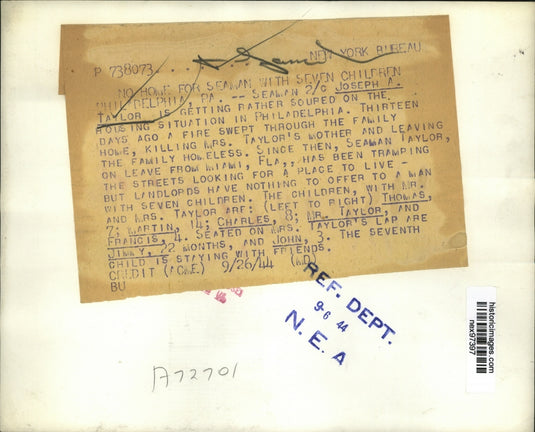 NEW YORK BUREAU
P 738073...
NO HOME FOR SEAMAN WITH SEVEN CHILDREN
PHILADELPHIA, PA. -- SEAMAN 2/C JOSEPH A.
TAYLOR IS GETTING RATHER SOURED ON THE
HOUSING SITUATION IN PHILADELPHIA. THIRTEEN
DAYS AGO A FIRE SWEPT THROUGH THE FAMILY
HOME, KILLING MRS. TAYLOR'S MOTHER AND LEAVING
THE FAMILY HOMELESS. SINCE THEN, SEAMAN TAYLOR,
ON LEAVE FROM MIAMI, FLA., HAS BEEN TRAMPING
THE STREETS LOOKING FOR A PLACE TO LIVE -
BUT LANDLORDS HAVE NOTHING TO OFFER TO A MAN
WITH SEVEN CHILDREN. THE CHILDREN, WITH MR.
AND MRS. TAYLOR ARE: (LEFT TO RIGHT) THOMAS,
7; MARTIN, 14; CHARLES, 8; MR. TAYLOR, AND
FRANCIS, 4. SEATED ON MRS. TAYLOR'S LAP ARE
JIMMY, 22 MONTHS, AND JOHN, 3. THE SEVENTH
CHILD IS STAYING WITH FRIENDS.
CREDIT (ACME) 9/26/44 (MD)
BU
REF. DEPT.
9-6 44
N. E. A
A72701
historicimages.com
nex97397